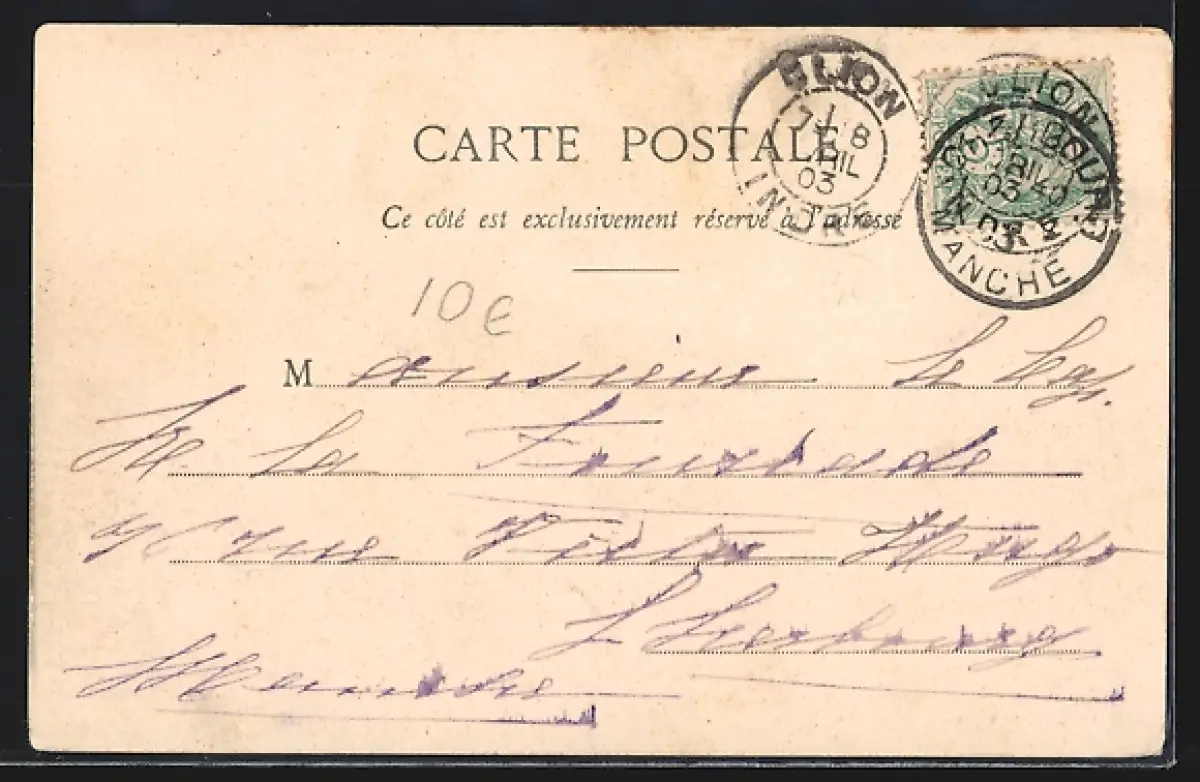 CARTE POSTALE
Ce côté est exclusivement réservé à l'adresse
CLION
7
8
AVRIL
03
INDRE
CLION
AVRIL
03
CHERBOURG
MANCHE
10€
Monsieur Le
De La
rue Victor Hugo
Cherbourg
Manche